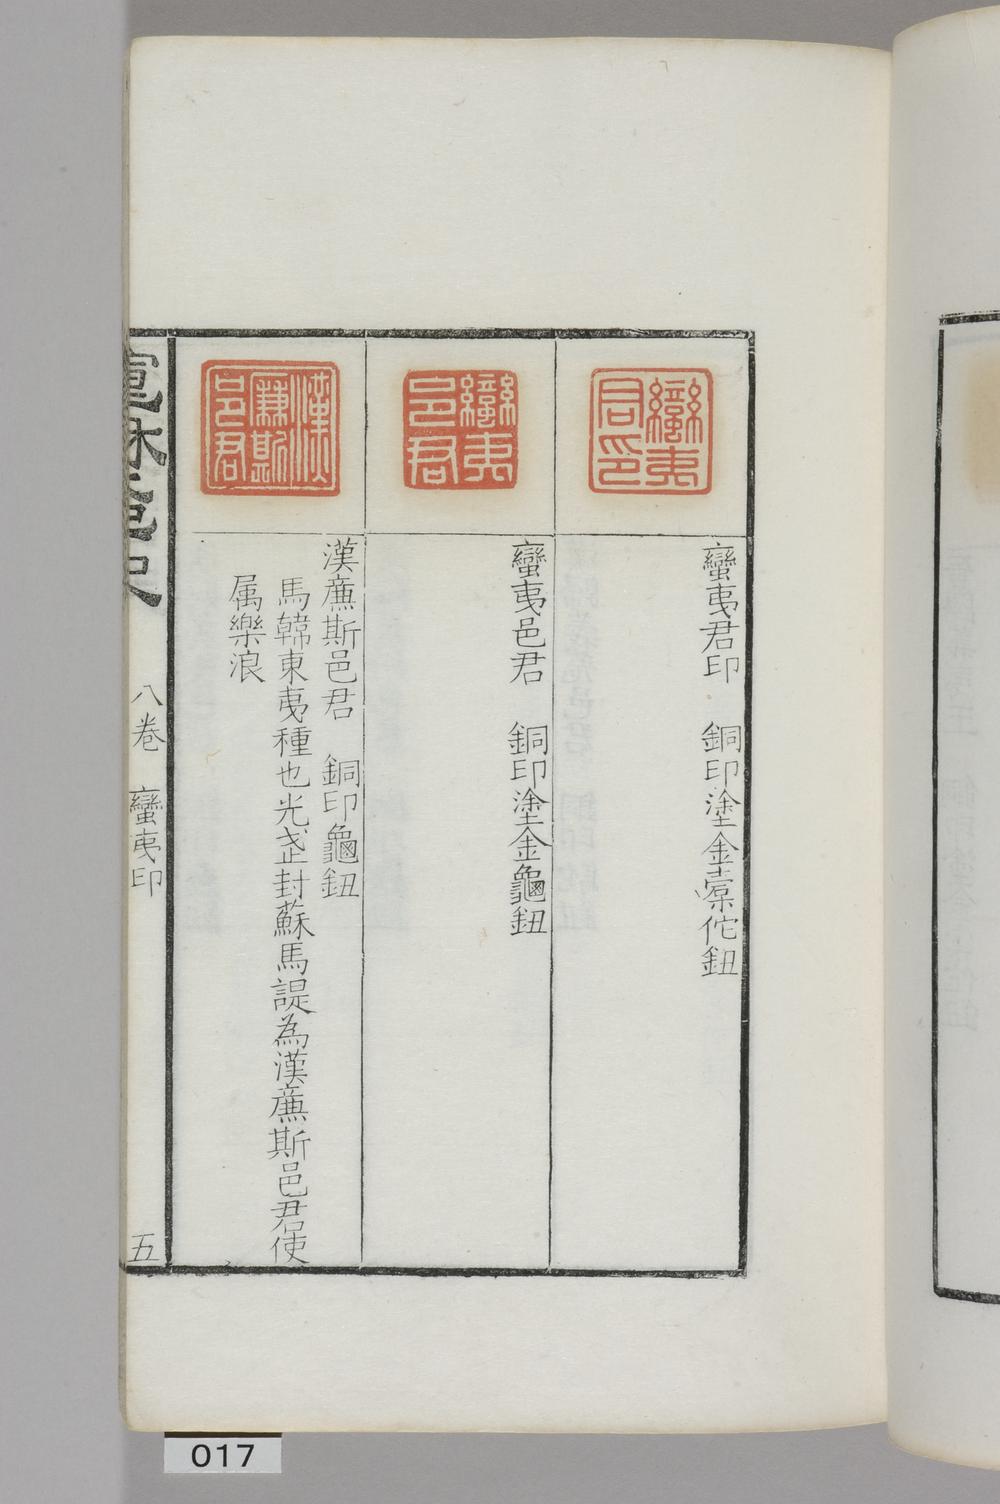 蠻夷君印
蠻夷君印　銅印塗金橐佗鈕
蠻夷邑君
蠻夷邑君　銅印塗金龜鈕
漢廉斯邑君
漢廉斯邑君　銅印龜鈕
馬韓東夷種也光武封蘇馬諟為漢廉斯邑君使
属樂浪
八卷　蠻夷印
五
017